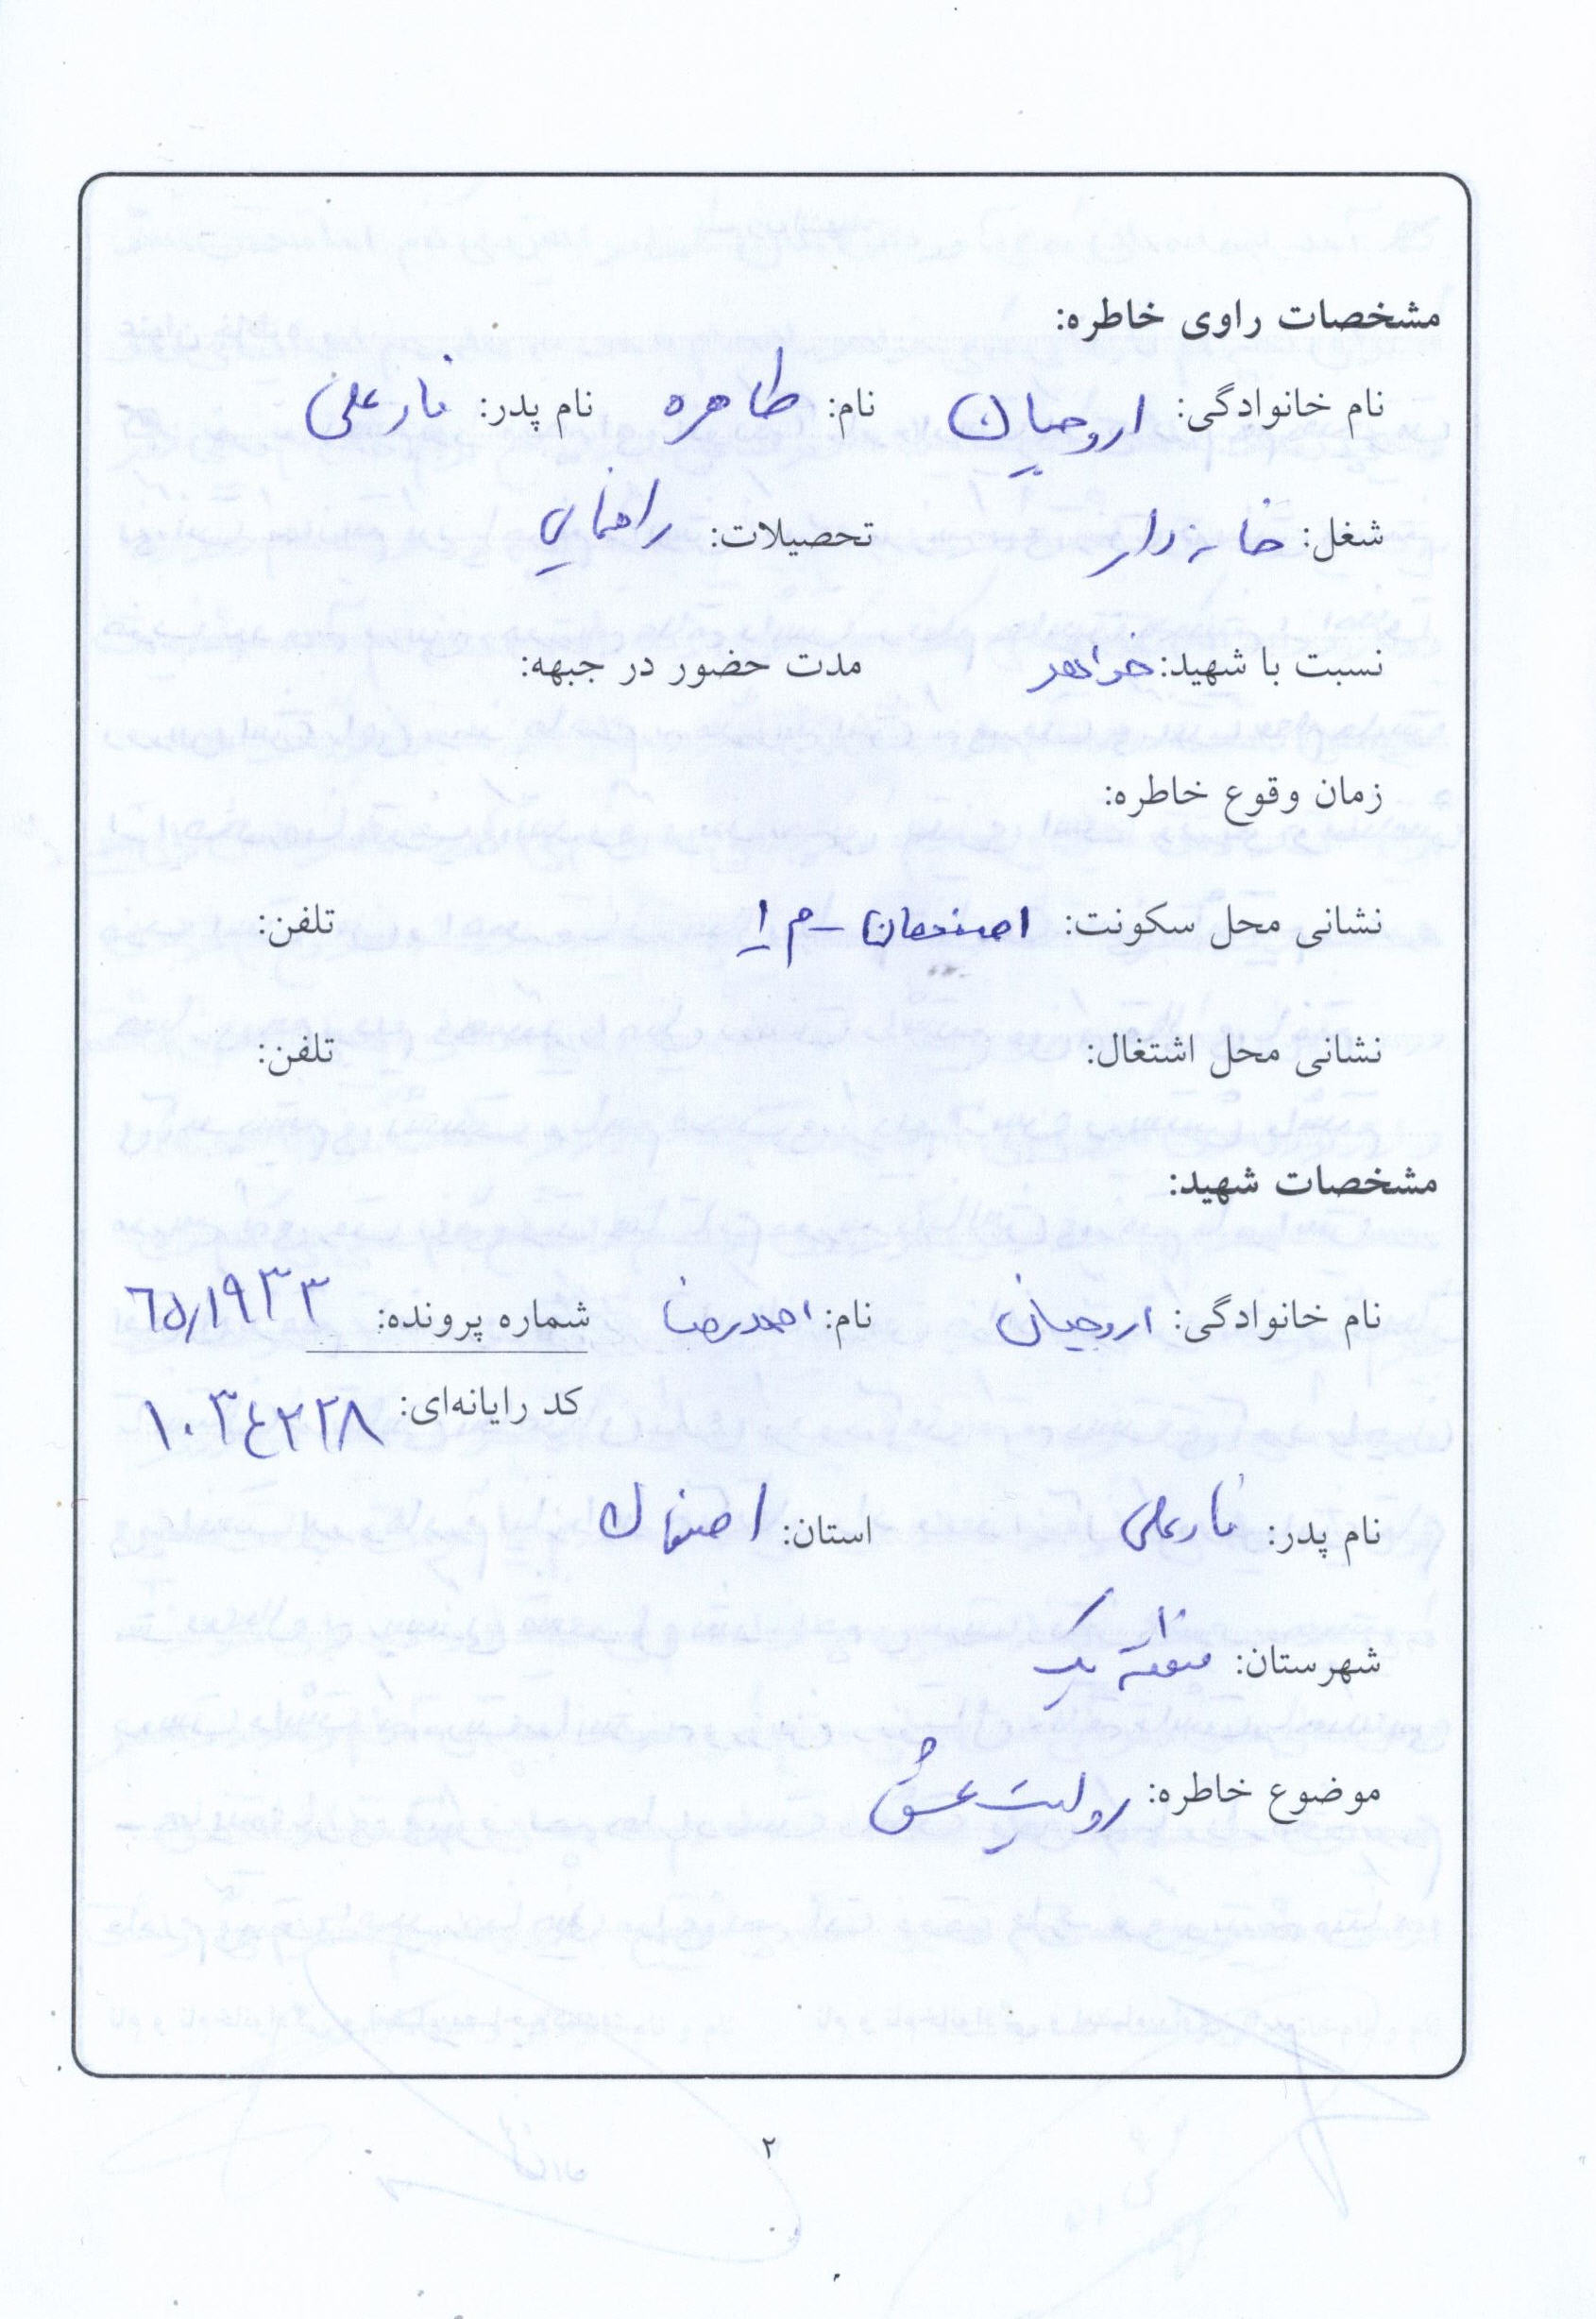 مشخصات راوی خاطره:
نام خانوادگی: اروجیان نام: طاهره نام پدر: یارعلی
شغل: خانه‌دار تحصیلات: راهنمایی
نسبت با شهید: خواهر مدت حضور در جبهه:
زمان وقوع خاطره:
نشانی محل سکونت: اصفهان - م ۱ تلفن:
نشانی محل اشتغال: تلفن:
مشخصات شهید:
نام خانوادگی: اروجیان نام: احمدرضا شماره پرونده: ٦٥/١٩٣٣
کد رایانه‌ای: ١٠٣٤٢٢٨
نام پدر: یارعلی استان: اصفهان
شهرستان: منطقه یک
موضوع خاطره: روایت عشق
۲